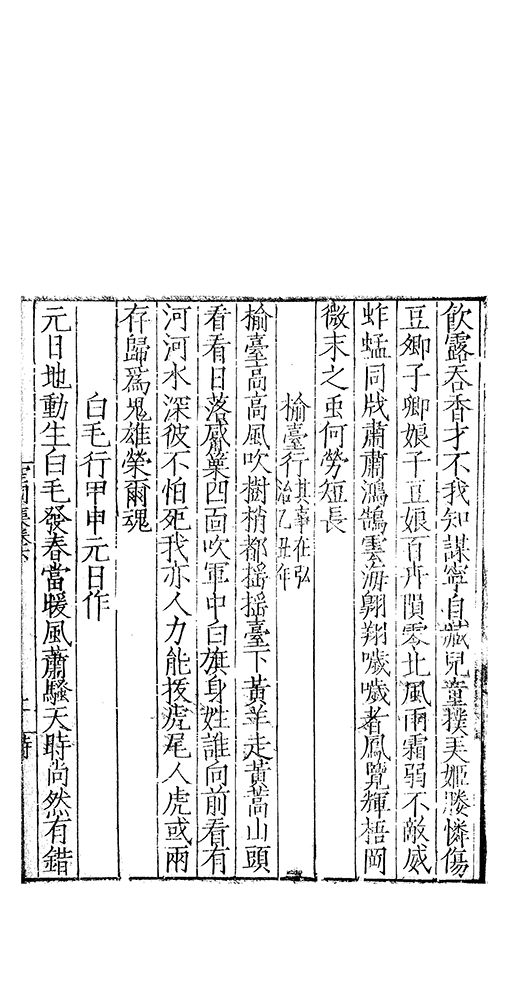 飲露吞香才不我知謀寧自藏兒童撲美姬塍憐傷
豆卿子卿娘子豆娘百卉隕零北風雨霜弱不敵威
蚱蜢同戕肅肅鴻鵠雲海翺翔噦噦者鳳覽輝梧岡
微末之虫何勞短長
榆臺行其事在弘治乙丑年
榆臺高高風吹樹梢都揺揺臺下黃羊走黃蒿山頭
看看日落觱篥四面吹軍中白旗身姓誰向前看有
河河水深彼不怕死我亦人力能援虎尾人虎或兩
存歸爲鬼雄榮爾魂
白毛行甲申元日作
元日地動生白毛發春當暖風蕭騷天時尚然有錯